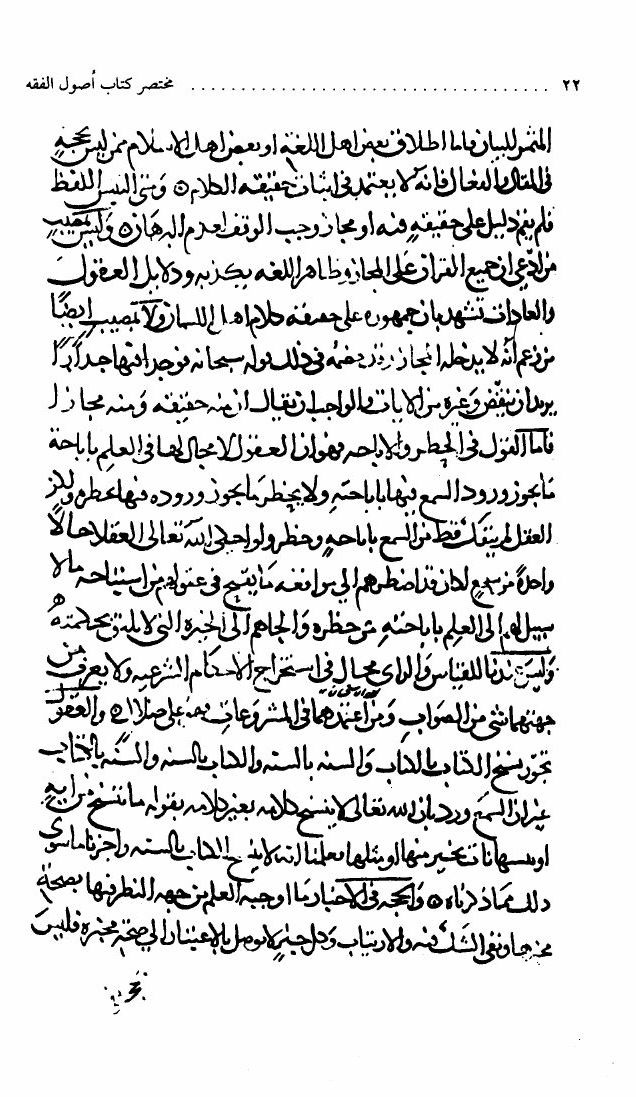 ٢٢ ................................... مختصر كتاب أصول الفقه
المثمر للبيان فاما اطلاق بعض اهل اللغة او بعض اهل الاسلام ممن ليس بحجه
في المقال والفعال فانه لا يعتمد في اثبات حقيقة الكلام ومتى التبس اللفظ
فلم يقم دليل على حقيقه فيه او مجاز وجب الوقف لعدم البرهان وليس بمصيب
من ادعى ان جميع القران على المجاز وظاهر اللغه يكذبه ودلايل العقول
والعادات تشهد بان جمهوره على حقيقه كلام اهل اللسان ولا بمصيب ايضًا
من زعم انه لا يدخله المجاز وقد في ذلك قوله سبحانه فوجدا فيها جدارًا
يريد ان ينقض وغيره من الايات والواجب ان يقال ان منه حقيقه ومنه مجازا
فاما القول في الحظر والاباحه فهو ان العقول لا مجال لها في العلم باباحة
ما يجوز ورود السمع فيها باباحته ولا بحظر ما يجوز وروده فيها بحظره ولكن
العقل لم ينفك قط من السمع باباحه وحظر ولو اخلى الله تعالى العقلا حالا
واحدة من سمع لكان قد اضطرهم الى مواقعه ما يقبح في عقولهم من استباحه ما لا
سبيل لهم الى العلم باباحته من حظره والجاهم الى الحيره التي لا يليق بحكمته
وليس عندنا للقياس والراى مجال في استخراج الاحكام الشرعيه ولا يعرف من
جهتهما شى من الصواب ومن اعتمدهما في المشروعات فهو على ضلال والعقول
تجوز نسخ الكتاب بالكتاب والسنه بالسنه والكتاب بالسنه والسنه بالكتاب
غير ان السمع ورد بان الله تعالى لا ينسخ كلامه بغير كلامه بقوله ما ننسخ من ايه
او ننسها نات بخير منها او مثلها فعلمنا انه لا ينسخ الكتاب بالسنه واجزنا ما سوى
ذلك مما ذكرناه والحجه في الاخبار ما اوجبه العلم من جهه النظر فيها بصحة
مخبرها ونفى الشك فيه والارتياب وكل خبر لا يوصل بالاعتبار الى صحة مخبره فليس